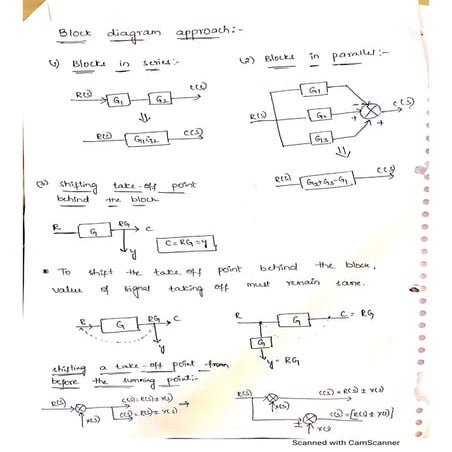 Block diagram approach:-
(1) Blocks in series:-
(2) Blocks in parallel:-
R(s) G1 G2 C(s)
R(s) G1G2 C(s)
R(s) G1 G2 G3 - + + C(s)
R(s) G2+G3-G1 C(s)
(3) shifting take-off point
behind the block
R G RG C
y
C=RG=y
• To shift the take off point behind the block,
value of signal taking off must remain same.
R G RG C
y
R G C = RG
G
y = RG
shifting a take-off point from
before the summing point:-
R(s) C(s)=R(s) ± X(s)
X(s) C(s)=R(s) ± X(s)
R(s) C(s) = R(s) ± X(s)
X(s) C(s)=[R(s) ± X(s)]
± X(s)
Scanned with CamScanner